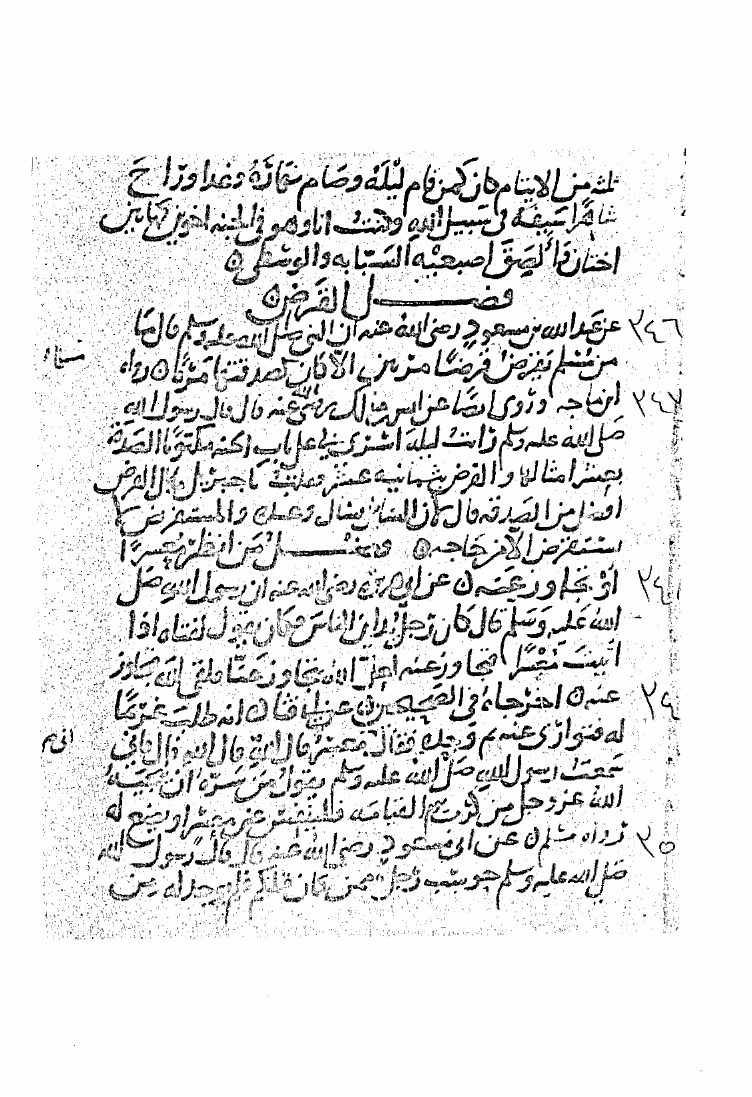 ثلثه من الايتام كان كمن قام ليله وصام نهاره وغدا وراح
شاهرا سيفه في سبيل الله وكنت انا وهو في الجنه اخوين كهاتين
اختان والصق اصبعيه السبابه والوسطى
فصل القرض
٣٤٦ عن عبد الله بن مسعود رضي الله عنه ان النبي صلى الله عليه وسلم قال ما
من مسلم يقرض قرضا مرتين الا كان كصدقتها مرة رواه
٣٤٧ ابن ماجه وروى ايضا عن انس بن مالك رضي الله عنه قال قال رسول الله
صلى الله عليه وسلم رات ليلة اسري بي على باب الجنه مكتوبا الصدقة
بعشر امثالها والقرض بثمانيه عشر فقلت يا جبريل ما بال القرض
افضل من الصدقه قال لان السائل يسال وعنده والمستقرض لا
يستقرض الا من حاجه فصل من انظر معسرا
٣٤ او تجاوز عنه عن ابي هريرة رضي الله عنه ان رسول الله صلى
الله عليه وسلم قال كان رجل يداين الناس فكان يقول لفتاه اذا
اتيت معسرا تجاوز عنه لعل الله يتجاوز عنا فلقي الله فتجاوز
٣٤ عنه اخرجاه في الصحيحين عن ابي قتادة انه طلب غريما
له فتوارى عنه ثم وجده فقال اني معسر قال الله قال الله قال فاني
سمعت رسول الله صلى الله عليه وسلم يقول من سره ان ينجيه
الله عز وجل من كرب يوم القيامه فلينفس عن معسر او يضع له
٣٥ رواه مسلم عن ابي مسعود رضي الله عنه قال قال رسول الله
صلى الله عليه وسلم حوسب رجل ممن كان قبلكم فلم يوجد له من